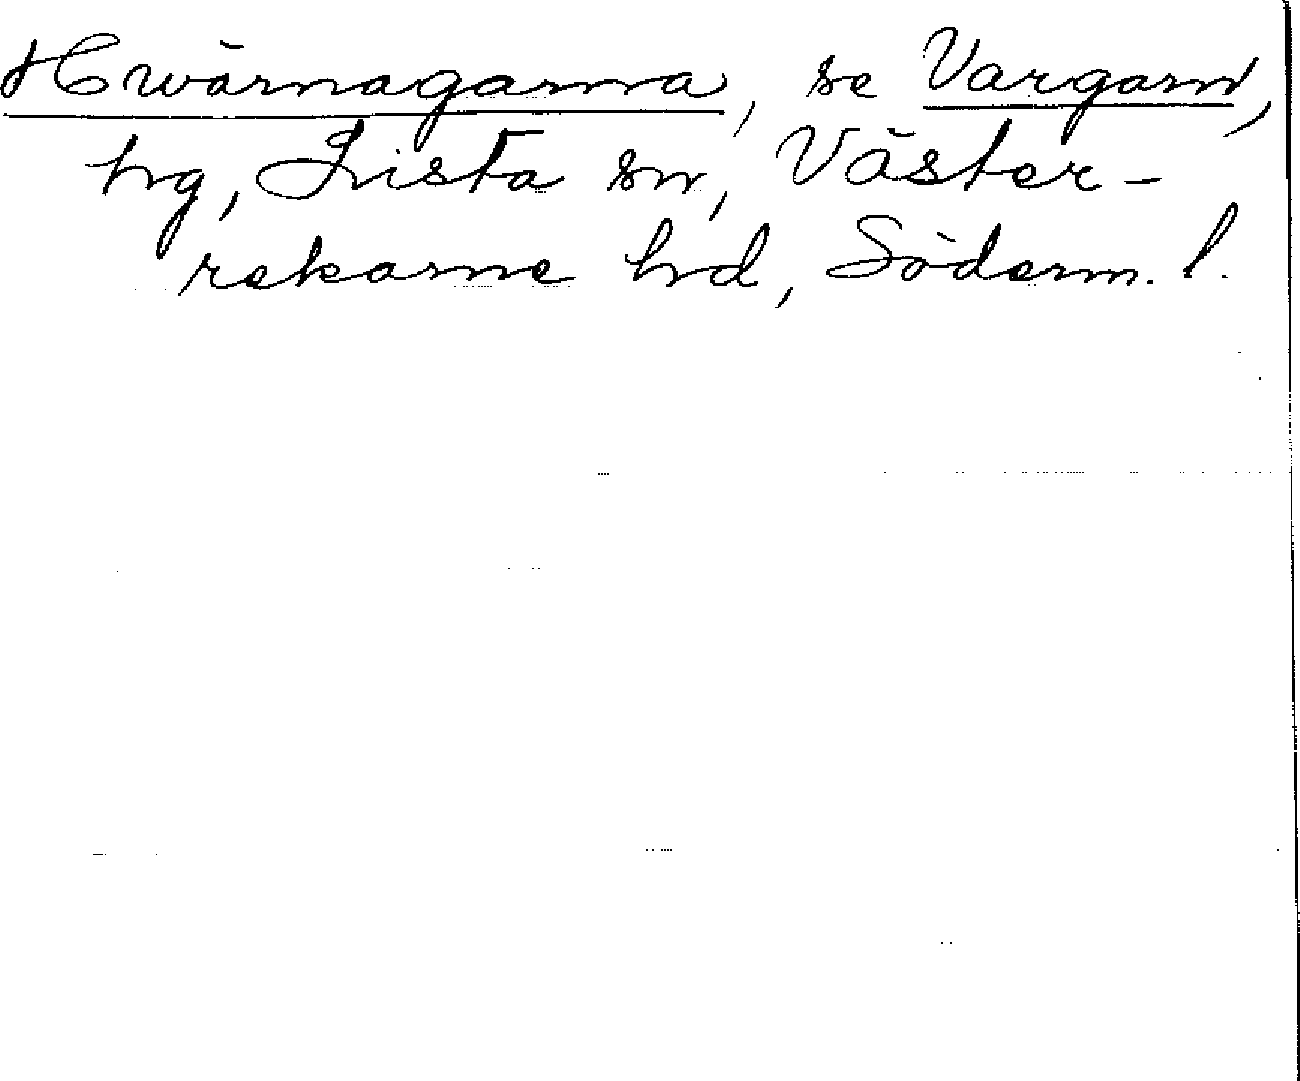 Hwärnagarna, se Vargarn,
hg, Lista sn, Väster-
rekarne hd, Söderm. l.